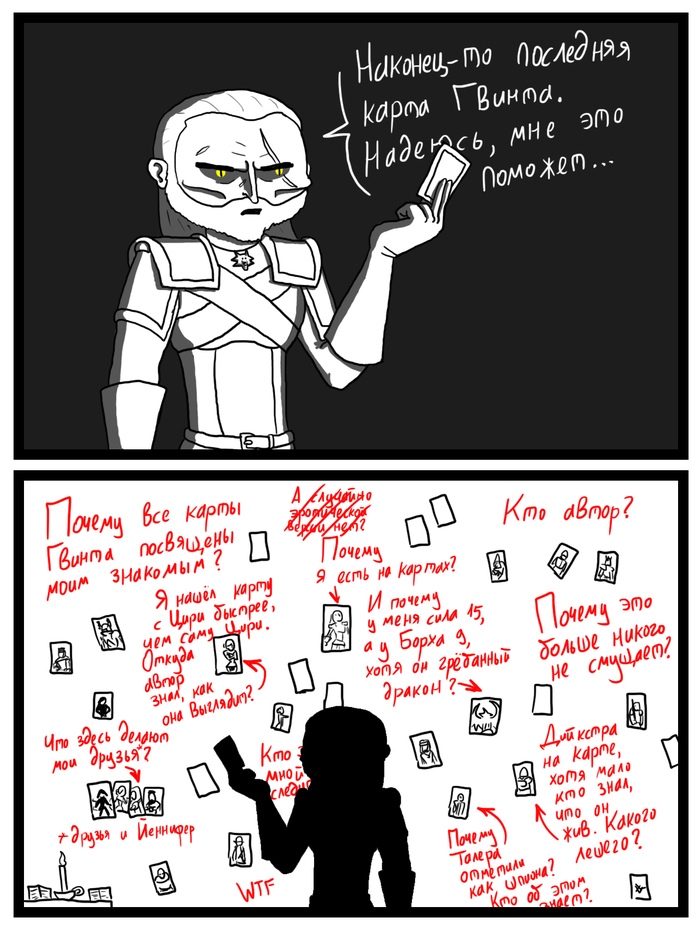 Наконец-то последняя
карта Гвинта.
Надеюсь, мне это
поможет...
Почему все карты
Гвинта посвящены
моим знакомым?
А случайно
эротической
версии нет?
Почему
я есть на картах?
Кто автор?
Я нашёл карту
с Цири быстрее,
чем саму Цири.
Откуда
автор
знал, как
она выглядит?
И почему
у меня сила 15,
а у Борха 9,
хотя он грёбанный
дракон?
Почему это
больше никого
не смущает?
Что здесь делают
мои друзья?
+ друзья и Йеннифер
Кто
мной
WTF
Дийкстра
на карте,
хотя мало
кто знал,
что он
жив. Какого
лешего?
Почему
Талера
отметили
как шпиона?
Кто об этом
знает?